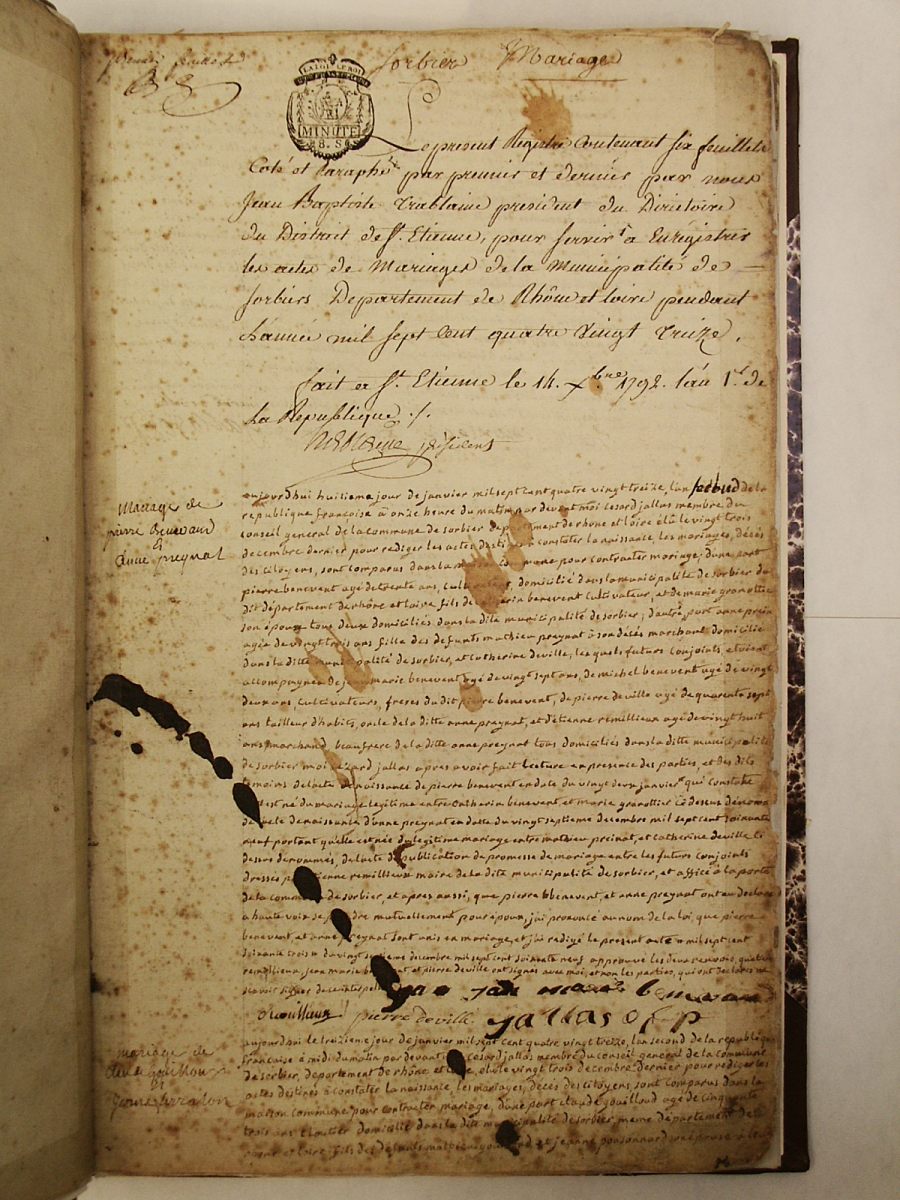 premier feuillet
Sorbier Mariage
LA LOI LE ROI
MINUTE
8. S
Le present Registre Contenant six feuillets
Coté et Paraphé par premier et dernier par nous
Jean Baptiste president du Directoire
du District de St. Etienne, pour servir a Enregistrer
les actes de Mariages de la Municipalité de
Sorbiers Departement de Rhône et Loire pendant
L'année mil sept Cent quatre Vingt Treize.
fait a St. Etienne le 14. Xbre 1792. L'an 1er de
La Republique ./.
président
Mariage de
pierre Benevant
Et
Anne preynat
aujourd'hui huitieme jour de janvier mil sept cent quatre vingt treize, l'an second de la
republique françoise à onze heure du matin par devant moi Cesard jallas membre du
conseil general de la commune de sorbier departement de rhône et loire élû le vingt trois
decembre dernier pour rediger les actes destinés à constater la naissance, les mariages, décés
des citoyens, sont comparus dans la maison commune pour contracter mariage; d'une part
pierre benevent agé de trente ans, cultivateur, domicilié dans la municipalité de sorbier du
dit département de rhône et loire fils de benevent cultivateur, et de marie granottier
son épouse tous deux domiciliés dans la dite municipalité de sorbier, d'autre part anne preinat
agée de vingt trois ans fille des defunts mathieu preynat à son décés marchand domicilié
dans la ditte municipalité de sorbier, et catherine deville, les quels futurs conjoints, etoient
accompagnés de jean marie benevent agé de vingt sept ans, de michel benevent agé de vingt
deux ans, cultivateurs, freres du dit pierre benevent, de pierre deville agé de quarente sept
ans tailleur d'habits, oncle de la ditte anne preynat, et d'etienne remillieux agé de vingt huit
ans marchand, beaufrere de la ditte anne preynat tous domiciliés dans la ditte municipalité
de sorbier moi Cezard jallas apres avoir fait lecture en presence des parties, et des dits
temoins de l'acte de naissance de pierre benevent en date du vingt deux janvier qui constate
est né du mariage legitime entre benevent, et marie granottier ci dessus denommé
de l'acte de naissance d'anne preynat en datte du vingt septieme decembre mil sept cent soixante
neuf portant qu'elle est née du legitime mariage entre mathieu preinat, et catherine deville ci
dessus denommés, de l'acte de publication de promesse de mariage entre les futurs conjoints
dressé par etienne remillieux maire de la dite municipalité de sorbier, et afficé à la porte
de la commune de sorbier, et apres aussi, que pierre benevent, et anne preynat ont eu declaré
a haute voix se prendre mutuellement pour époux, j'ai prononcé au nom de la loi, que pierre
benevent, et anne preynat sont unis en mariage, et j'ai redigé le present acte mil sept cent
soixante trois du vingt septieme decembre mil sept cent soixante neuf approuvé les deux renvois,
remillieux, jean marie benevent et pierre deville ont signés avec moi, et non les parties, qui ont declarés ne
scavoir signer de ce
jan marie benevant
remillieux pierre deville jallas ofp
mariage de
Claude gouilloud
Et
aujourd'hui le treizieme jour de janvier mil sept cent quatre vingt treize, l'an second de la republique
francaise à midi du matin par devant moi Cesard jallas membre du conseil general de la commune
de sorbier, departement de rhône et loire, élu le vingt trois decembre dernier pour rediger les
actes destinés à constater la naissance, les mariages, décés des citoyens, sont comparus dans la
maison commune pour contracter mariage, d'une part claude gouilloud agé de cinquante
trois ans cloutier domicilié dans la dite municipalité de sorbier, meme département de
rhône et loire, fils des defunts gouilloud et jeanne ponsonnard